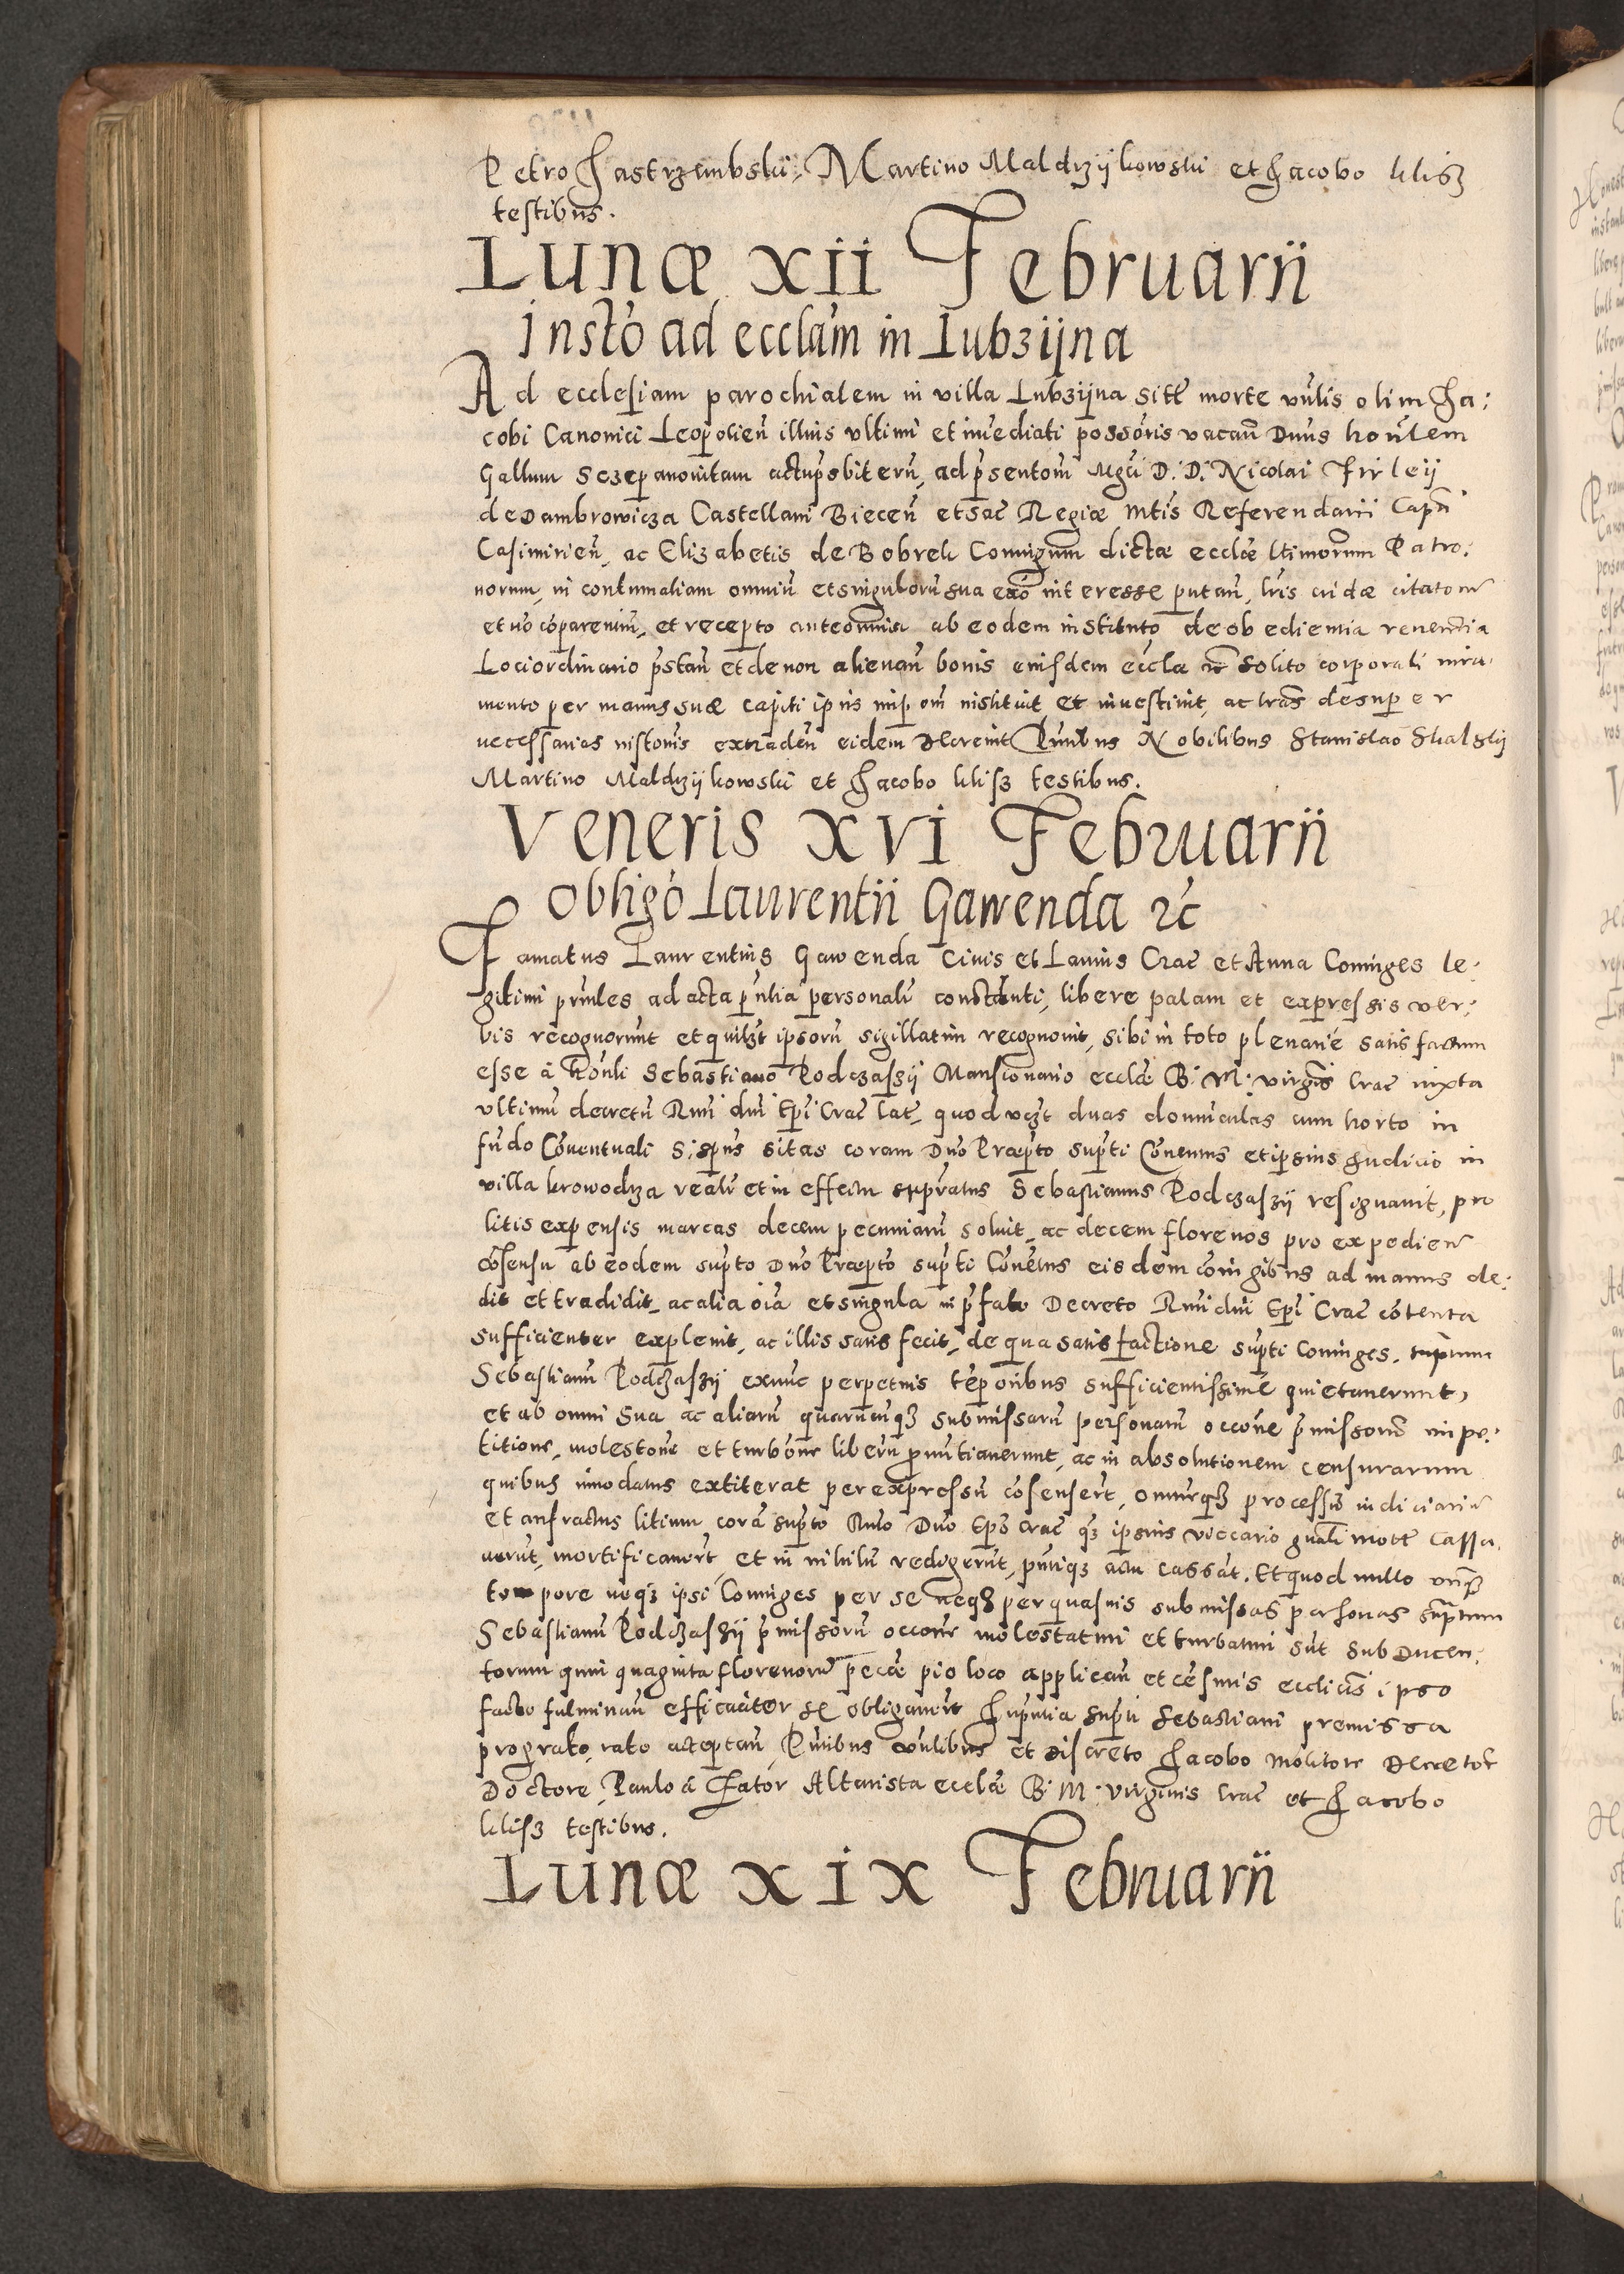 Petro Jastrzembski, Martino Maldrzijkowski et Jacobo klisz
testibus.
Lunæ xii Februarii
Insto ad ecclam in Lubzijna
Ad ecclesiam parochialem in villa Lubzijna sitt morte vulis olim Ja:
cobi Canonici Leopolien illius ultimi et imediati possoris vacan Dnus honlem
Gallum Sczepanovitam actu psbiterum, ad psentom Mgci D. D. Nicolai Firleij
de Dambrowicza Castellani Biecen et Sac Regiæ Mtis Referendarii Capn
Casimirien, ac Elizabetis de Bobrek Coniugum dictæ ecclæ ltimorum Patro:
norum, in contumatiam omniu et singuloru sua exo interesse putan, lris citatorum
et no coparentiu, et recepto ante omnia ab eodem instituto de obedientia reverentia
Loci ordinario pstan et de non alienan bonis eiusdem eccla solito corporali iura
mento per manus suæ capiti ipius impom instituit et investivit, ac lras desuper
necessarias instonis extraden eidem decrevit Pntibus Nobilibus Stanislao Skalskij
Martino Maldrzijkowski et Jacobo klisz testibus.
Veneris xvi Februarii
Obligo Laurentii Gawenda &c
Famatus Laurentius Gawenda Civis et Lanius Crac et Anna Coniuges le:
gitimi pntes ad acta pntia personalr constituti, libere palam et expressis ver:
bis recognoverunt et quilzt ipsoru sigillatim recognovit, sibi in toto plenarie satis factum
esse a honli Sebastiano Podczaszij Mansionario ecclæ B. M. virginis Crac iuxta
ultimu decretu Rmi dni Epi Crac lat, quod vczt duas domunculas cum horto in
fundo Coventuali S. spus sitas coram Dno Præpto supti Conventus et ipsius Judicio in
villa krowodrza realr et in effectu supratus Sebastianus Podczaszij resignavit, pro
litis expensis marcas decem pecuniaru solvit, ac decem florenos pro expedien
cosensu ab eodem supto Dno Præpto supti Coventus eisdem coniugibus ad manus de:
dit et tradidit, ac alia oia et singula in pfato Decreto Rmi dni Epi Crac cotenta
sufficienter explevit, ac illis satis fecit, de qua satisfactione supti Coniuges, suptum
Sebastianu Podczaszij exnunc perpetuis teporibus sufficientissime quietaverunt,
et ab omni sua ac aliaru quarucuqz submissaru personaru occone pmissoru impe:
titione, molestone et turbone liberu pnuntiaverunt, ac in absolutionem censurarum
quibus inodatus extiterat per expressu cosensert, omneqz processu iudiciariu
et anfractus litium cora supto Rmo Dno Epo Crac qz ipsius viccario gnali mott Cassa
verut, mortificaverut et in nihilu redegerut, pntiqz actu cassat. Et quod nullo unq
tempore neqz ipsi Coniuges per se neqz per quasvis submissas personas suptum
Sebastianu Podczaszij pmissoru occone molestaturi et turbaturi sut sub Ducen:
torum quinquaginta florenoru pecæ pio loco applican et cesuris ecclicis ipso
facto fulminan efficaciter se obligaverut In pntia supti Sebastiani premissa
pro grato, rato acceptan, Pntibus vulibus et Discreto Jacobo Molitore Decretor
Doctore, Paulo a Zator Altarista ecclæ B. M. virginis Crac et Jacobo
klisz testibus.
Lunæ xix Februarii